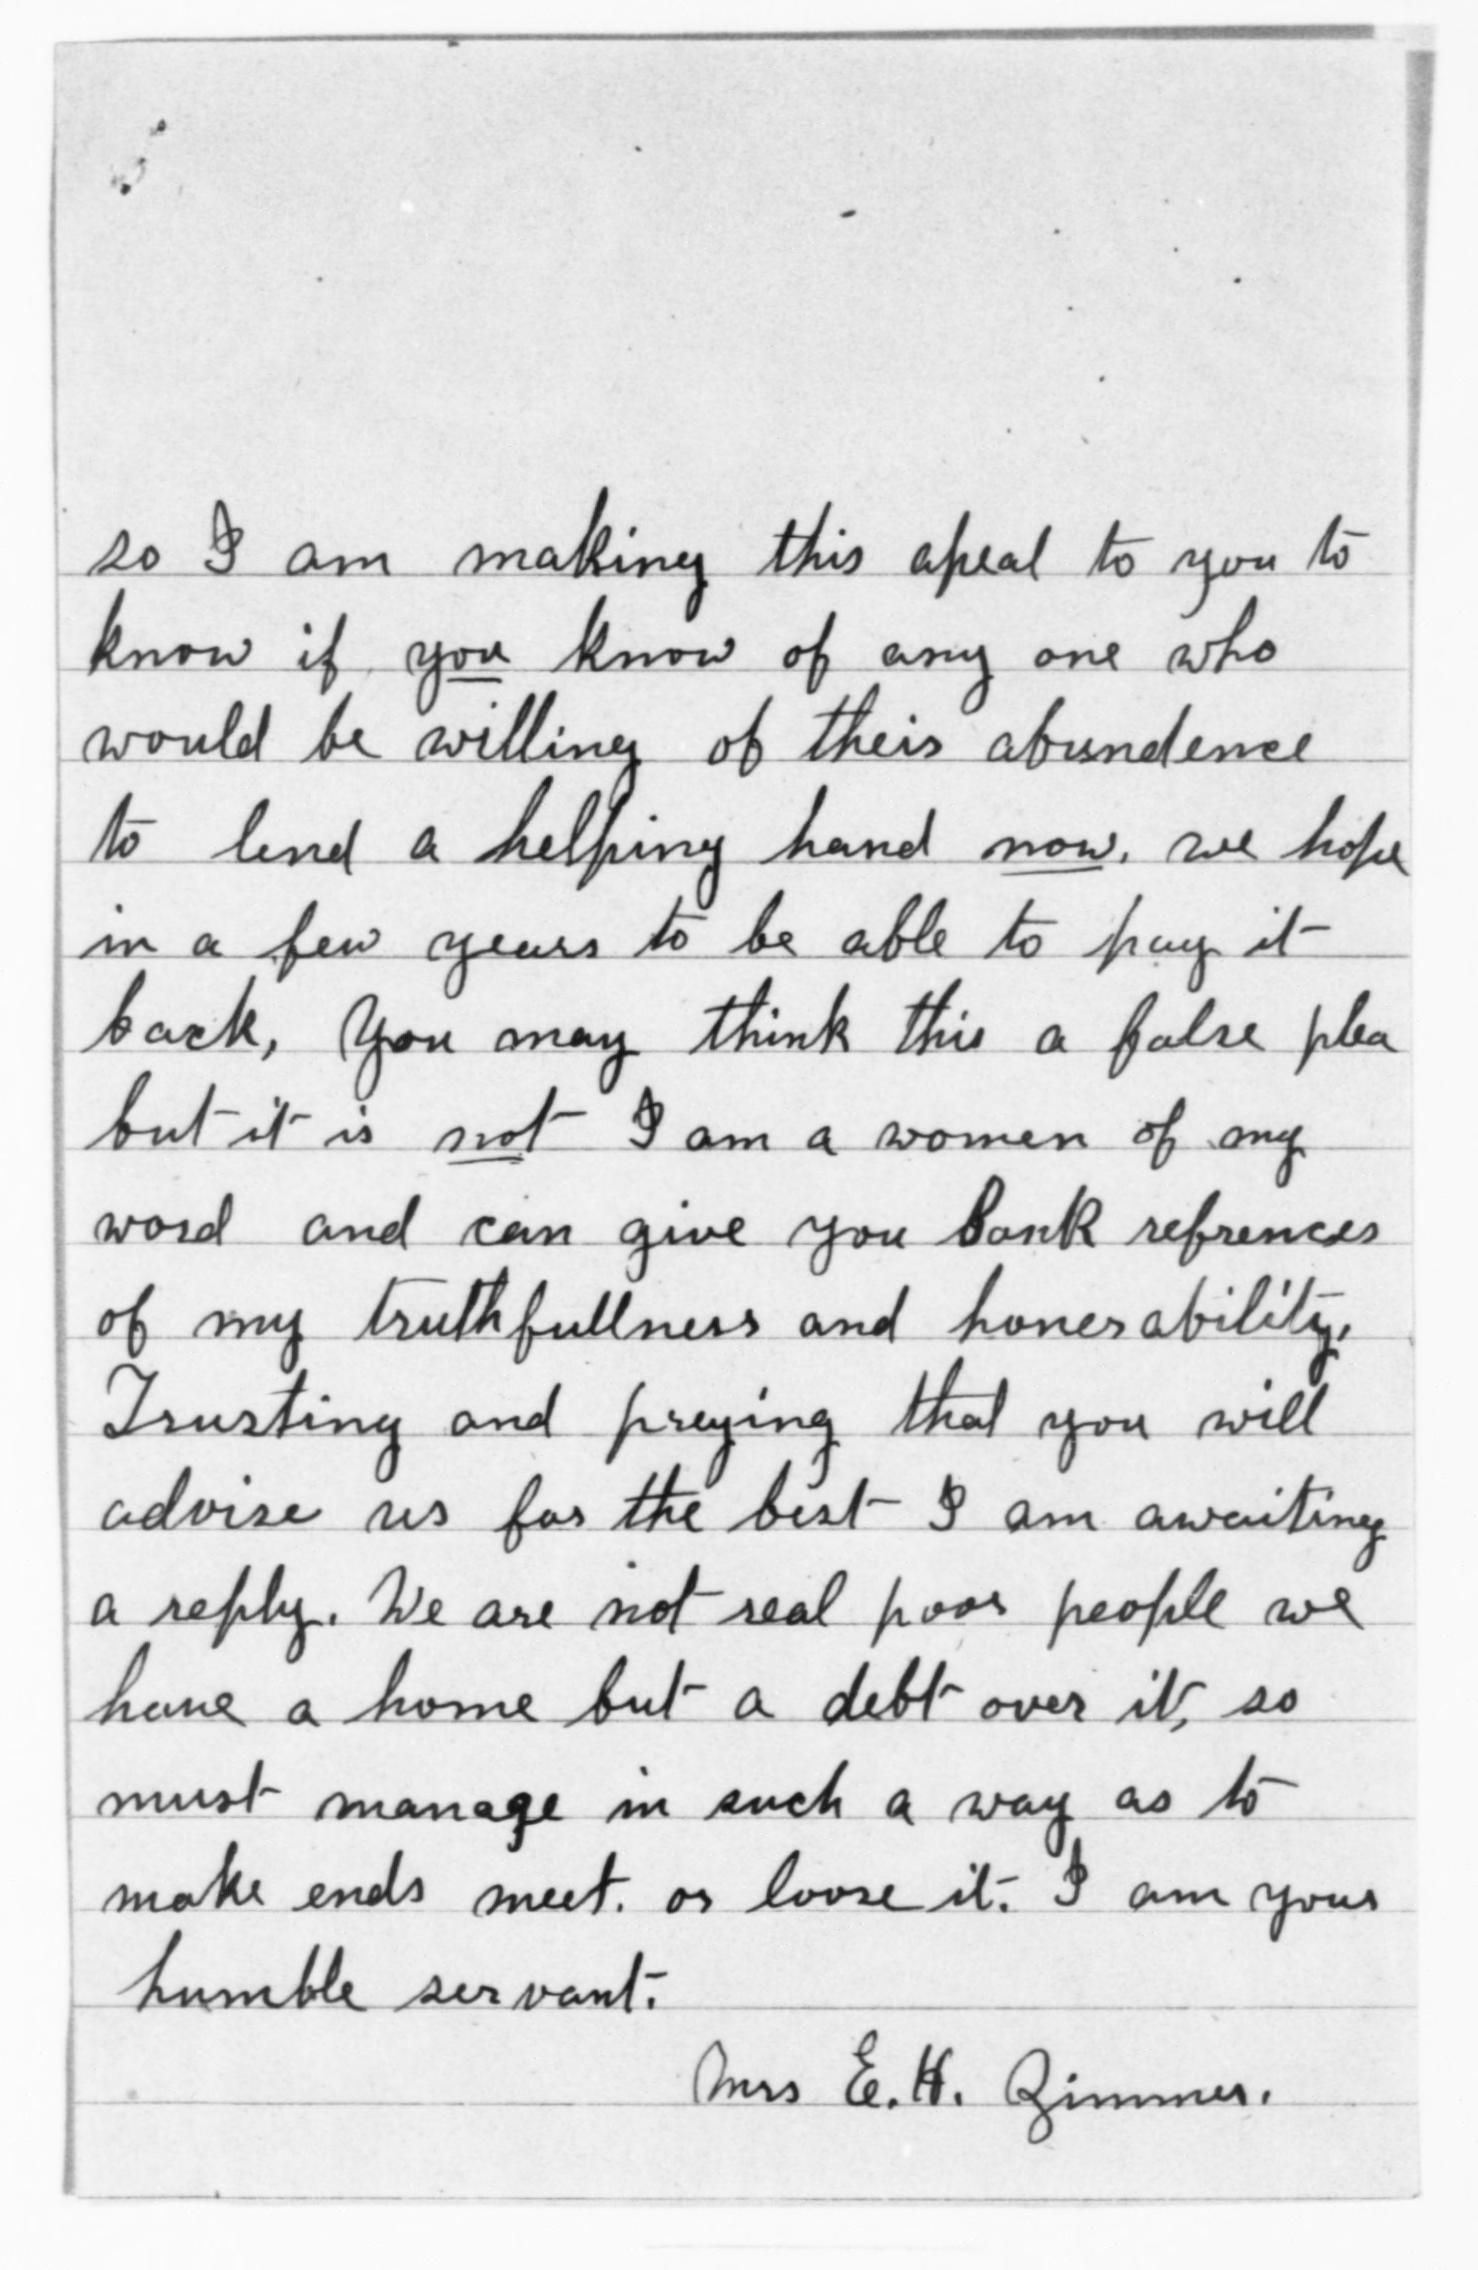 so I am making this apeal to you to
know if you know of any one who
would be willing of their abundence
to lend a helping hand now. we hope
in a few years to be able to pay it
back, You may think this a false plea
but it is not I am a women of my
word and can give you Bank refrences
of my truthfullness and honerability.
Trusting and preying that you will
advise us for the best I am awaiting
a reply. We are not real poor people we
have a home but a debt over it, so
must manage in such a way as to
make ends meet. or loose it. I am your
humble servant.
Mrs E. H. Zimmer.